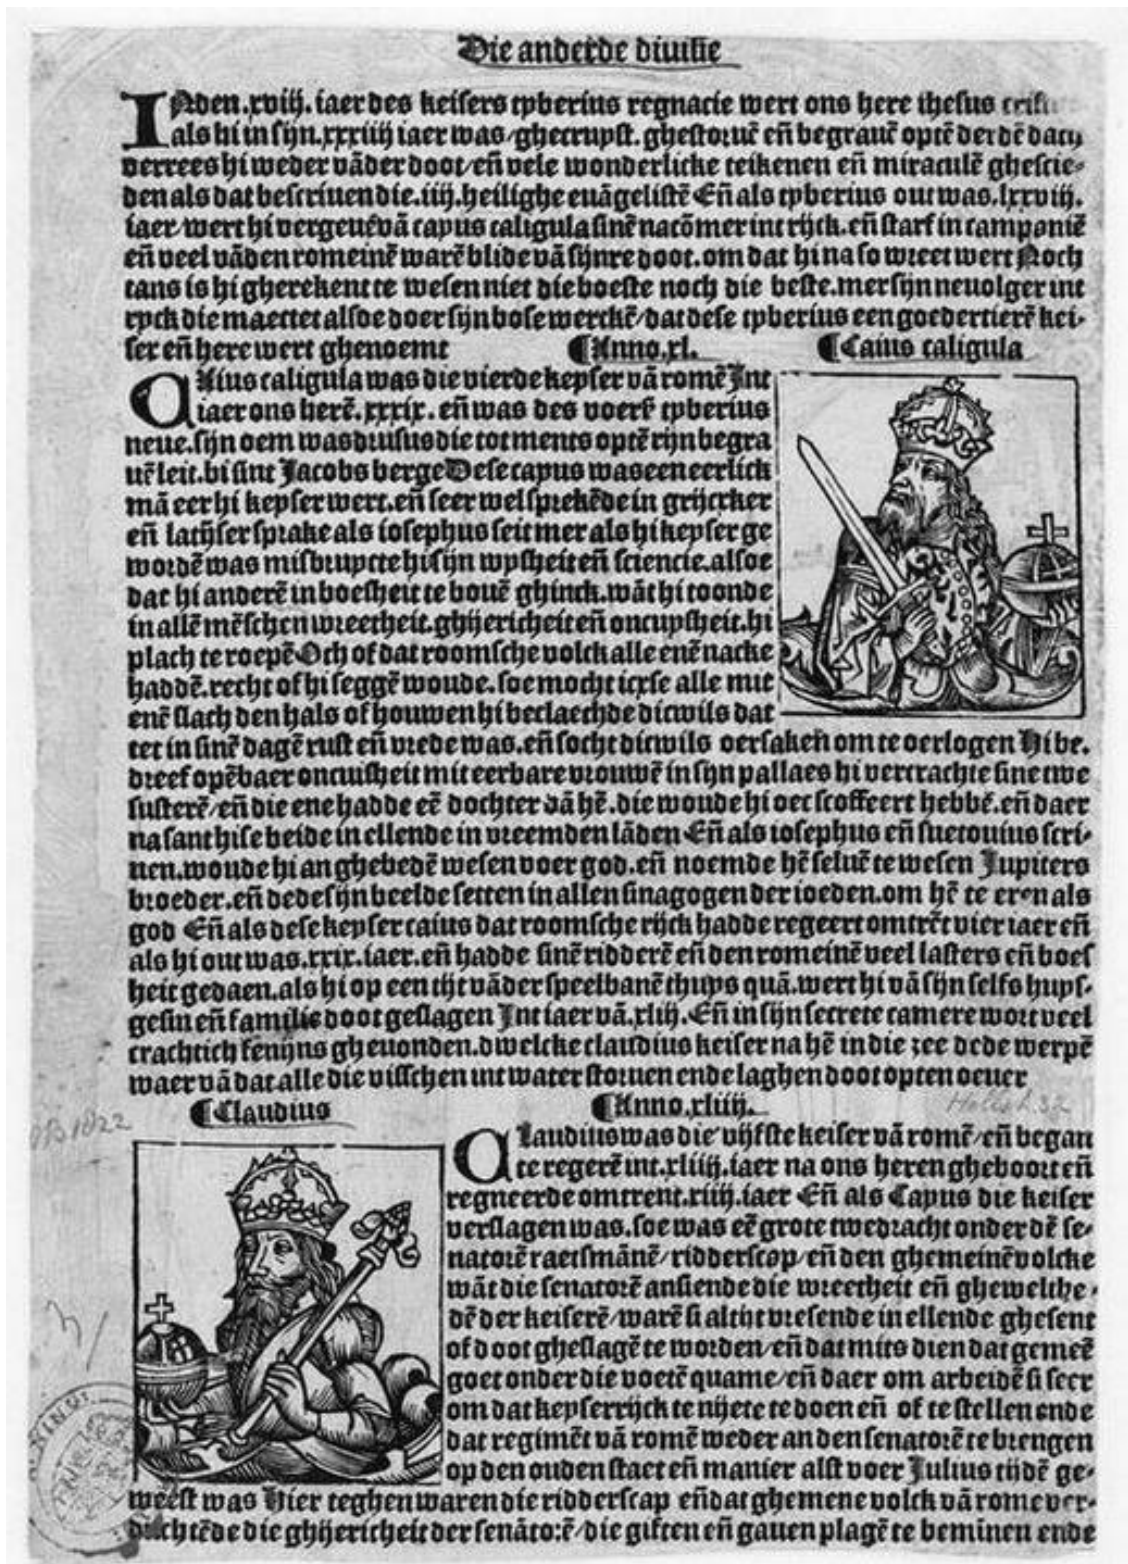 Die anderde diuisie
INden.xviij. iaer des keisers tyberius regnacie wert ons here ihesus
als hi in sijn.xxxiiij iaer was/ghecruyst. ghestoruē eñ begrauē optē derdē dach
verrees hi weder vāder doot/eñ vele wonderlicke teikenen eñ miraculē ghescie-
den als dat bescriuen die.iiij.heilighe euāgelistē Eñ als tyberius out was.lxxviij.
iaer/wert hi vergeuē vā cayus caligula sinē nacōmer int rijck.eñ starf in campaniē
eñ veel vāden romeinē warē blide vā sijnre doot.om dat hi na so wreet wert Noch
tans is hi gherekent te wesen niet die boeste noch die beste.mer sijn neuolger int
ryck die maectet alsoe doer sijn bose werckē/dat dese tyberius een goedertierē kei-
ser eñ here wert ghenoemt ¶Anno.xl. ¶Caius caligula
CAius caligula was die vierde keyser vā romē Int
iaer ons herē.xxxix. eñ was des voers tyberius
neue.sijn oem was drusus die tot ments optē rijn begra
uē leit.bi sint Jacobs berge Dese cayus was een eerlick
mā eer hi keyser wert.eñ seer wel sprekēde in grijcxker
eñ latijnser sprake als iosephus seit mer als hi keyser ge
wordē was misbruycte hi sijn wysheit eñ sciencie.alsoe
dat hi anderē in boesheit te bouē ghinck.wāt hi toonde
in allē mēschen wreetheit.ghijericheit eñ oncuysheit.hi
plach te roepē Och of dat roomsche volck alle enē nacke
haddē.recht of hi seggē woude.soe mocht icxse alle mit
enē slach den hals of houwen hi beclaechde dicwils dat
tet in sinē dagē rust eñ vrede was.eñ socht dicwils oersaken om te oerlogen Hi be.
dreef opēbaer oncuisheit mit eerbare vrouwē in sijn pallaes hi vercrachte sine twe
susterē/eñ die ene hadde eē dochter vā hē.die woude hi oec scoffeert hebbē.eñ daer
na sant hise beide in ellende in vreemden lāden Eñ als iosephus eñ suetonius scri-
uen.woude hi anghebedē wesen voer god.eñ noemde hē seluē te wesen Jupiters
broeder.eñ dede sijn beelde setten in allen sinagogen der ioeden.om hē te eren als
god Eñ als dese keyser caius dat roomsche rijck hadde regeert omtrēt vier iaer eñ
als hi out was.xxix.iaer.eñ hadde sinē ridderē eñ den romeinē veel lasters eñ boes
heit gedaen.als hi op een tijt vāder speelbanē thuys quā.wert hi vā sijn selfs huys-
gesin eñ familie doot geslagen Int iaer vā.xliij. Eñ in sijn secrete camere wort veel
crachtich fenijns gheuonden.dwelcke claudius keiser na hē in die zee dede werpē
waer vā dat alle die visschen int water storuen ende laghen doot opten oeuer
¶Claudius ¶Anno.xliiij.
CLaudius was die vijfste keiser vā romē/eñ began
te regerē int.xliiij.iaer na ons heren gheboort eñ
regneerde omtrent.xiiij.iaer Eñ als Cayus die keiser
verslagen was.soe was eē grote twedracht onder dē se-
natorē raetsmānē/ridderscap/eñ den ghemeinē volcke
wāt die senatorē ansiende die wreetheit eñ ghewelthe-
dē der keiserē/warē si altijt vresende in ellende ghesent
of doot gheslagē te worden/eñ dat mits dien dat gemeē
goet onder die voetē quame/eñ daer om arbeidē si seer
om dat keyserrijck te nijete te doen eñ of te stellen ende
dat regimēt vā romē weder an den senatorē te brengen
op den ouden staet eñ manier alst voer Julius tijdē ge-
weest was Hier teghen waren die ridderscap eñ dat ghemene volck vā rome ver-
duchtēde die ghijericheit der senatorē/die giften eñ gauen plagē te beminen ende